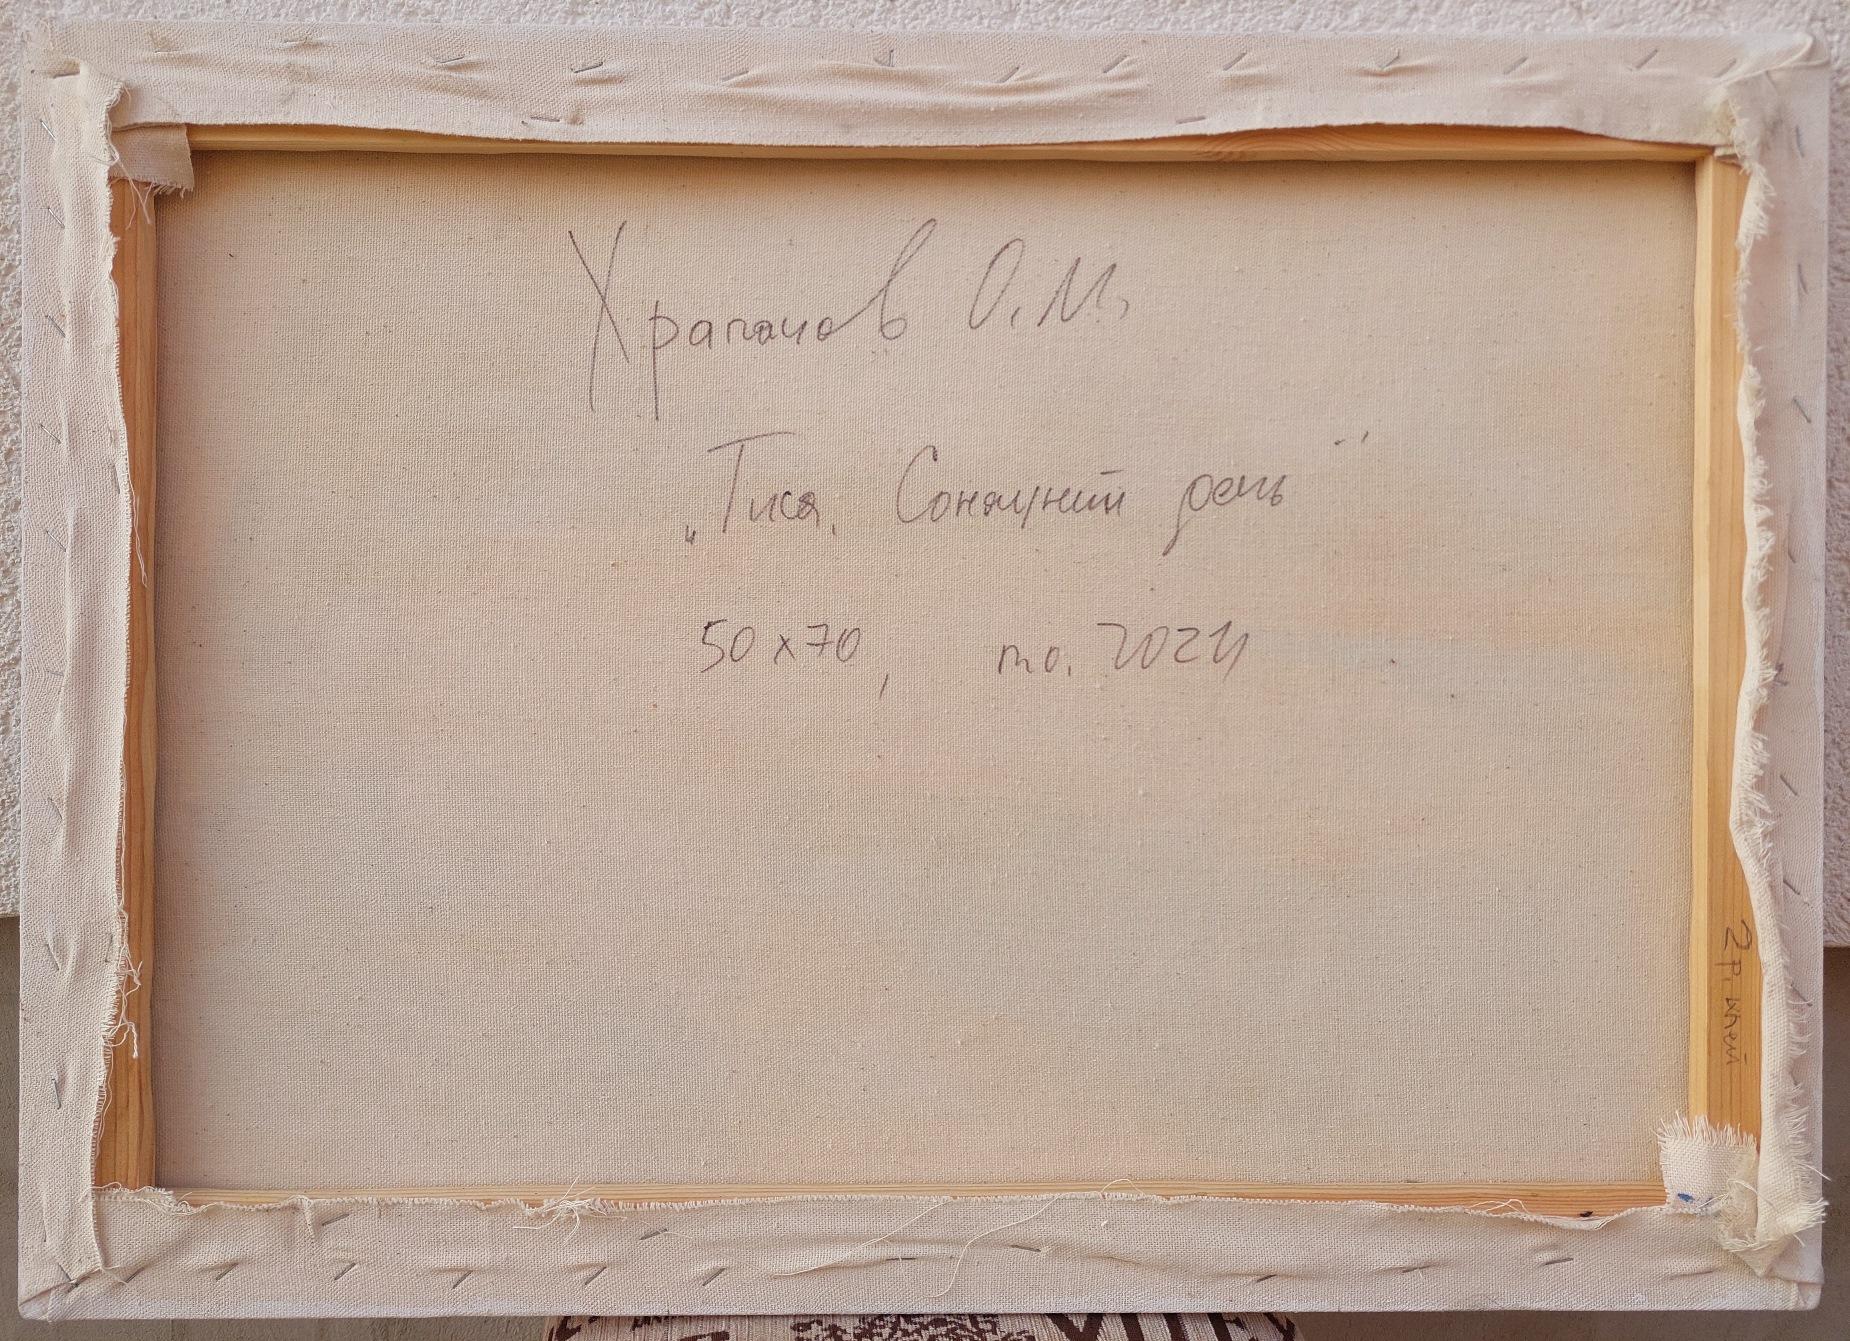 Храпачов О.М.
„Тиса. Сонячний день"
50х70, п.о. 2024
2 р. клей